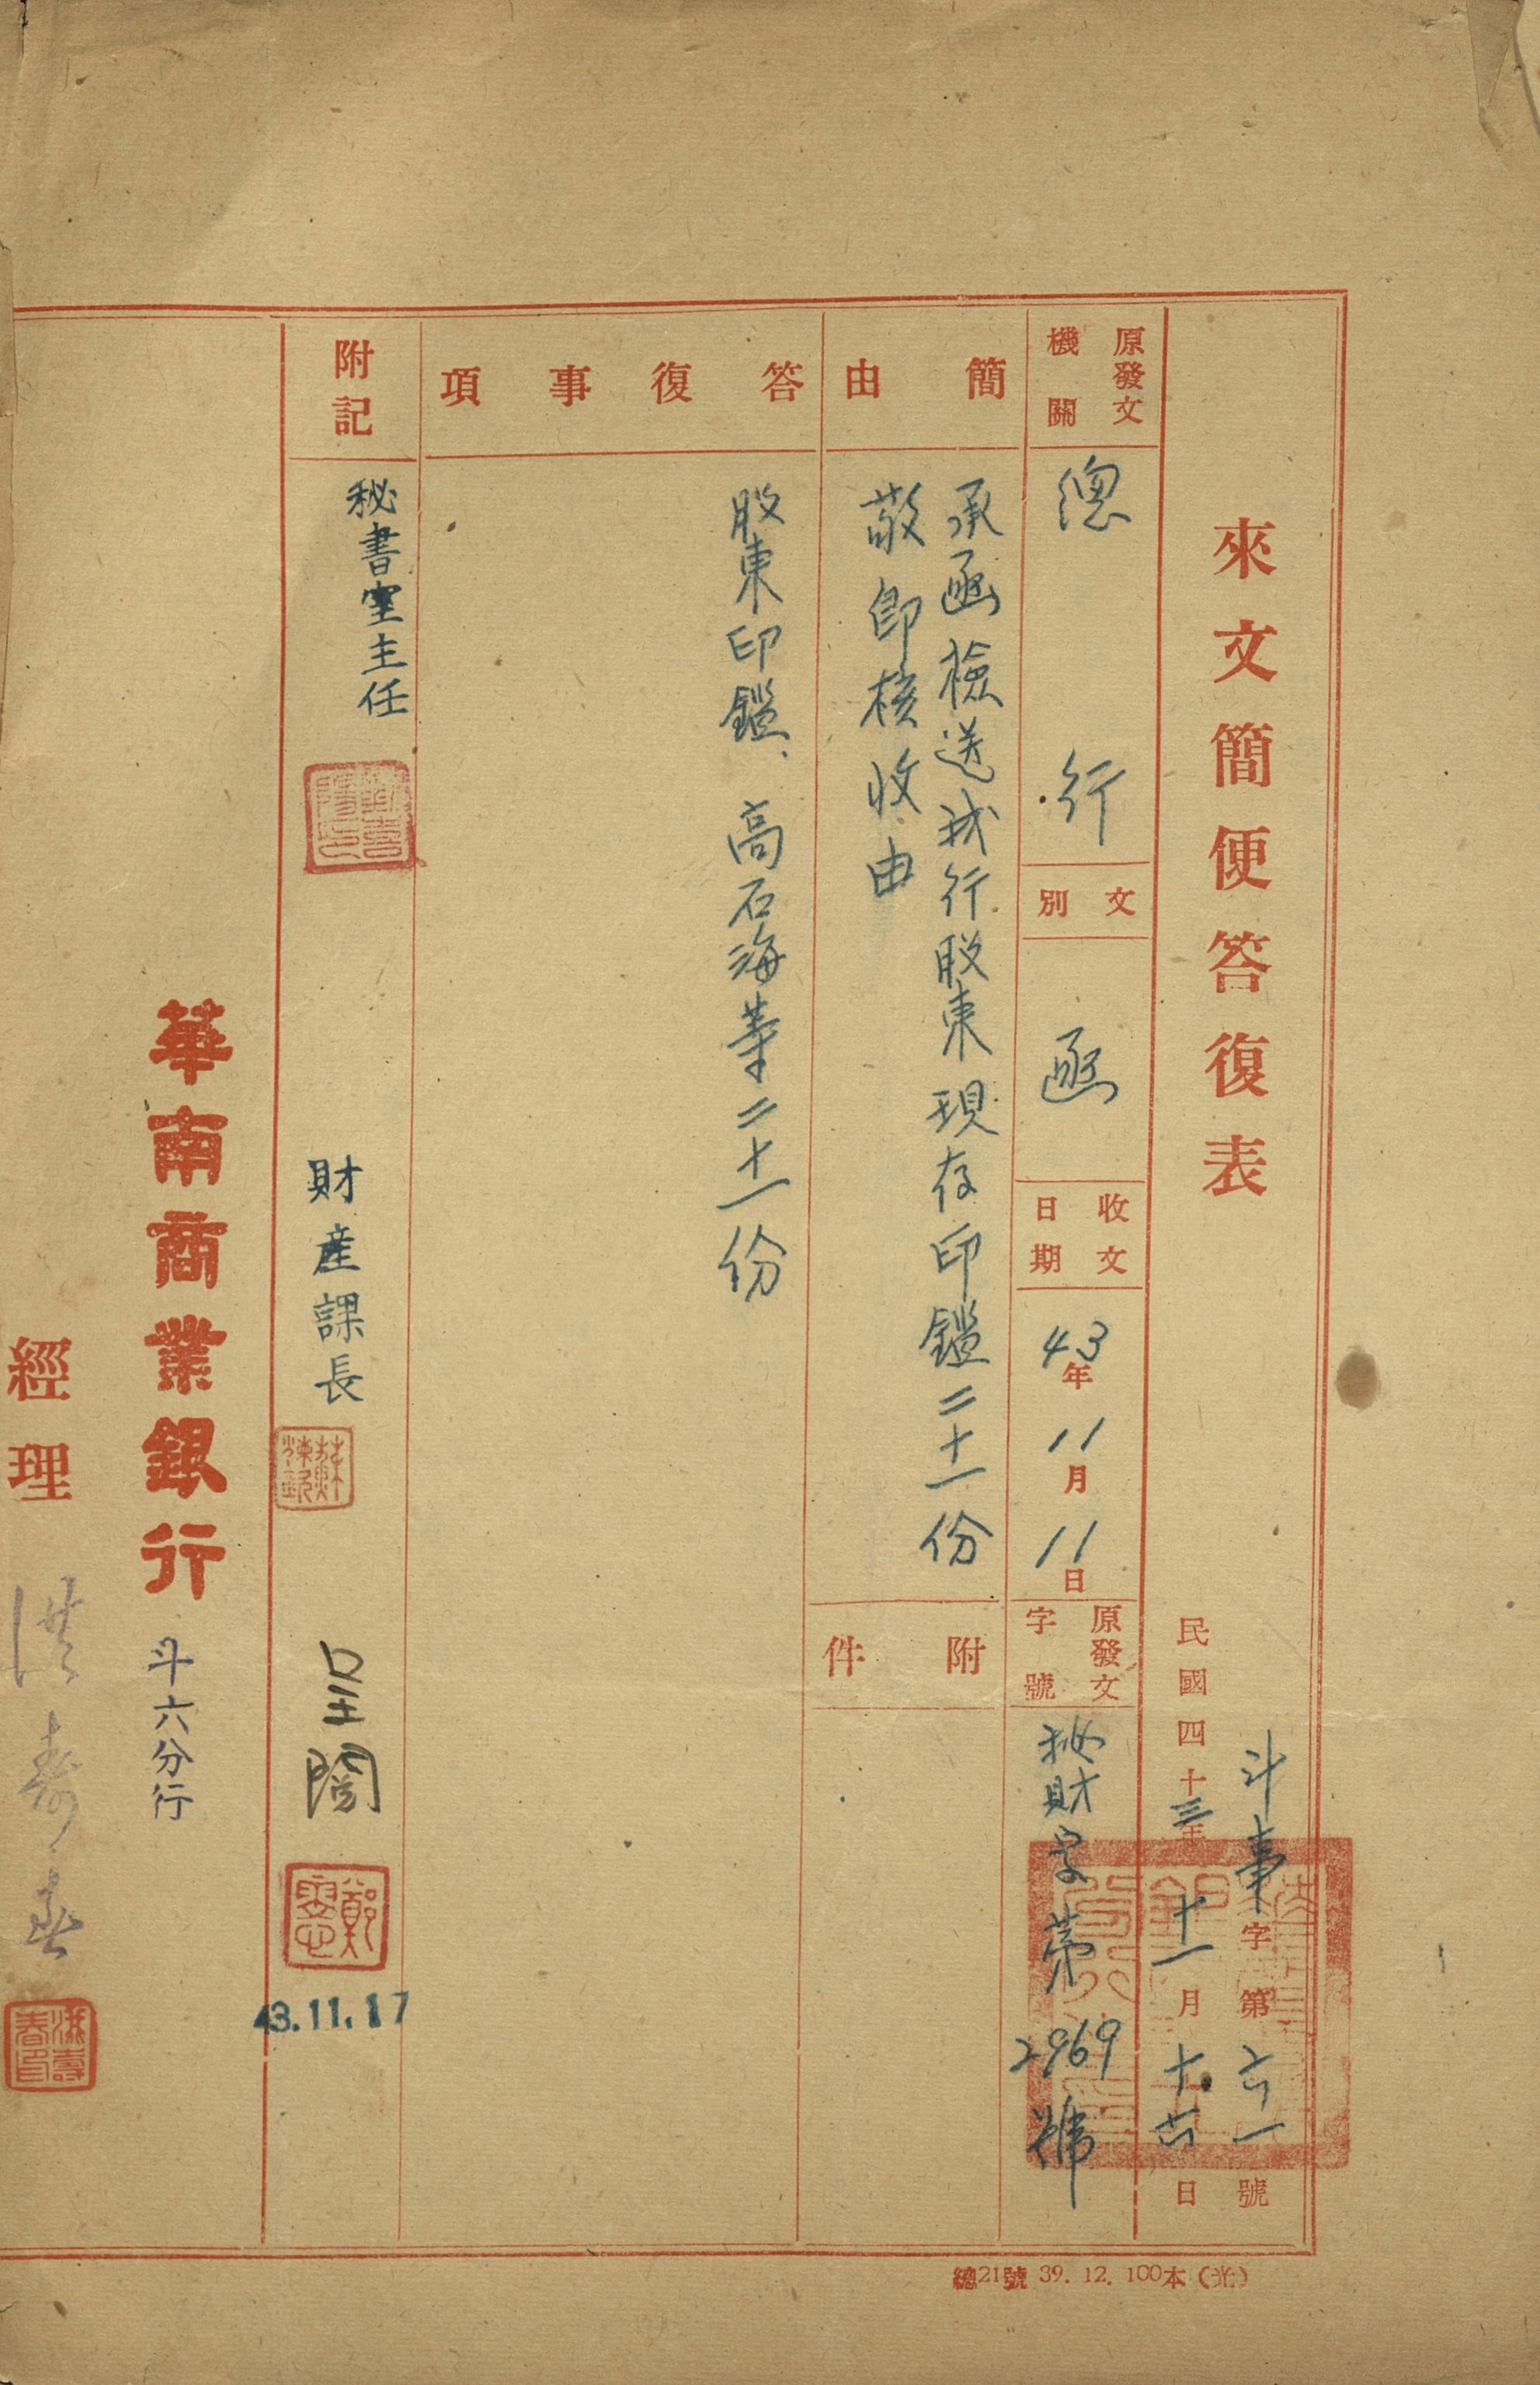 來文簡便答復表
斗事字第六一號
民國四十三年十一月十六日
原發文機關
總行
文別
函
收文日期
43年11月11日
原發文字號
秘財字第2969號
簡由
承函檢送我行股東現存印鑑二十一份
敬卽核收由
附件
答復事項
股東印鑑、高石海等二十一份
附記
秘書室主任
財產課長
呈閱
鄭
43.11.17
華南商業銀行
斗六分行
經理
洪壽春
洪壽春印
總21號 39. 12. 100本(光)